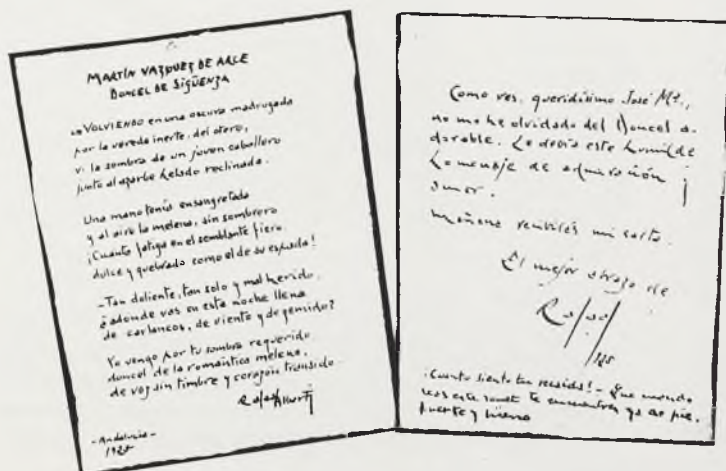 MARTÍN VAZQUEZ DE ARCE
DONCEL DE SIGÜENZA
VOLVIENDO en una oscura madrugada
por la vereda inerte del otero,
vi la sombra de un joven caballero
junto al azarbe helado reclinada.
Una mano tenía ensangretada
y al aire la melena, sin sombrero
¡Cuánta fatiga en el semblante fiero
dulce y quebrado como el de su espada!
-Tan doliente, tan solo y mal herido,
¿adonde vas en esta noche llena
de carlancos, de viento y de gemido?
Yo vengo por tu sombra requerido
doncel de la romántica melena,
de voz sin timbre y corazón transido
Rafael Alberti
-Andalucía-
192
Como ves, queridísimo José Mª,
no me he olvidado del Doncel a-
dorable. Le debía este humilde
homenaje de admiración y
amor.
Mañana recibirás mi carta.
El mejor abrazo de
Rafael
¡Cuanto siento tu recaída! - Que cuando
este soneto te encuentres ya de pie,
fuerte y bueno